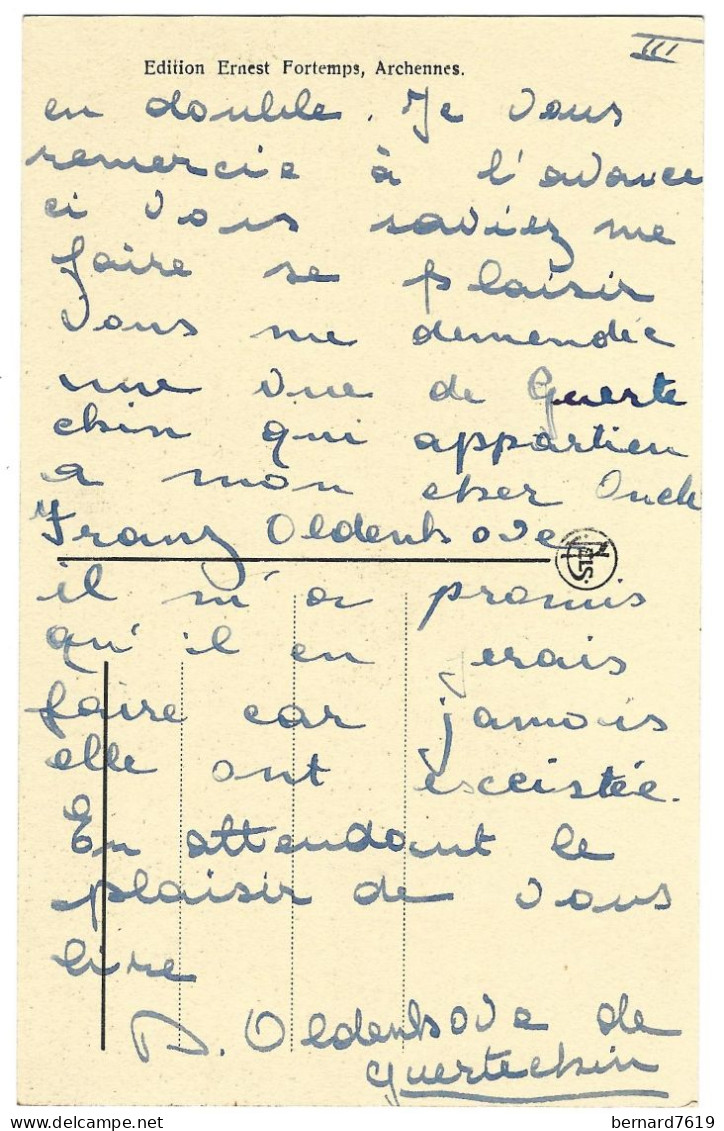 III
Edition Ernest Fortemps, Archennes.
en double. Je vous
remercie à l'avance
ci vous saviez me
faire se plaisir
Vous me demendée
une vue de Querte
chin qui appartien
a mon cher Oncle
Franz Oldenhove
NELS
il m'a promis
qu'il en ferais
faire car jamais
elle ont exceistée.
En attendant le
plaisir de vous
lire
A. Oldenhove de
Guertechin
bernard7619